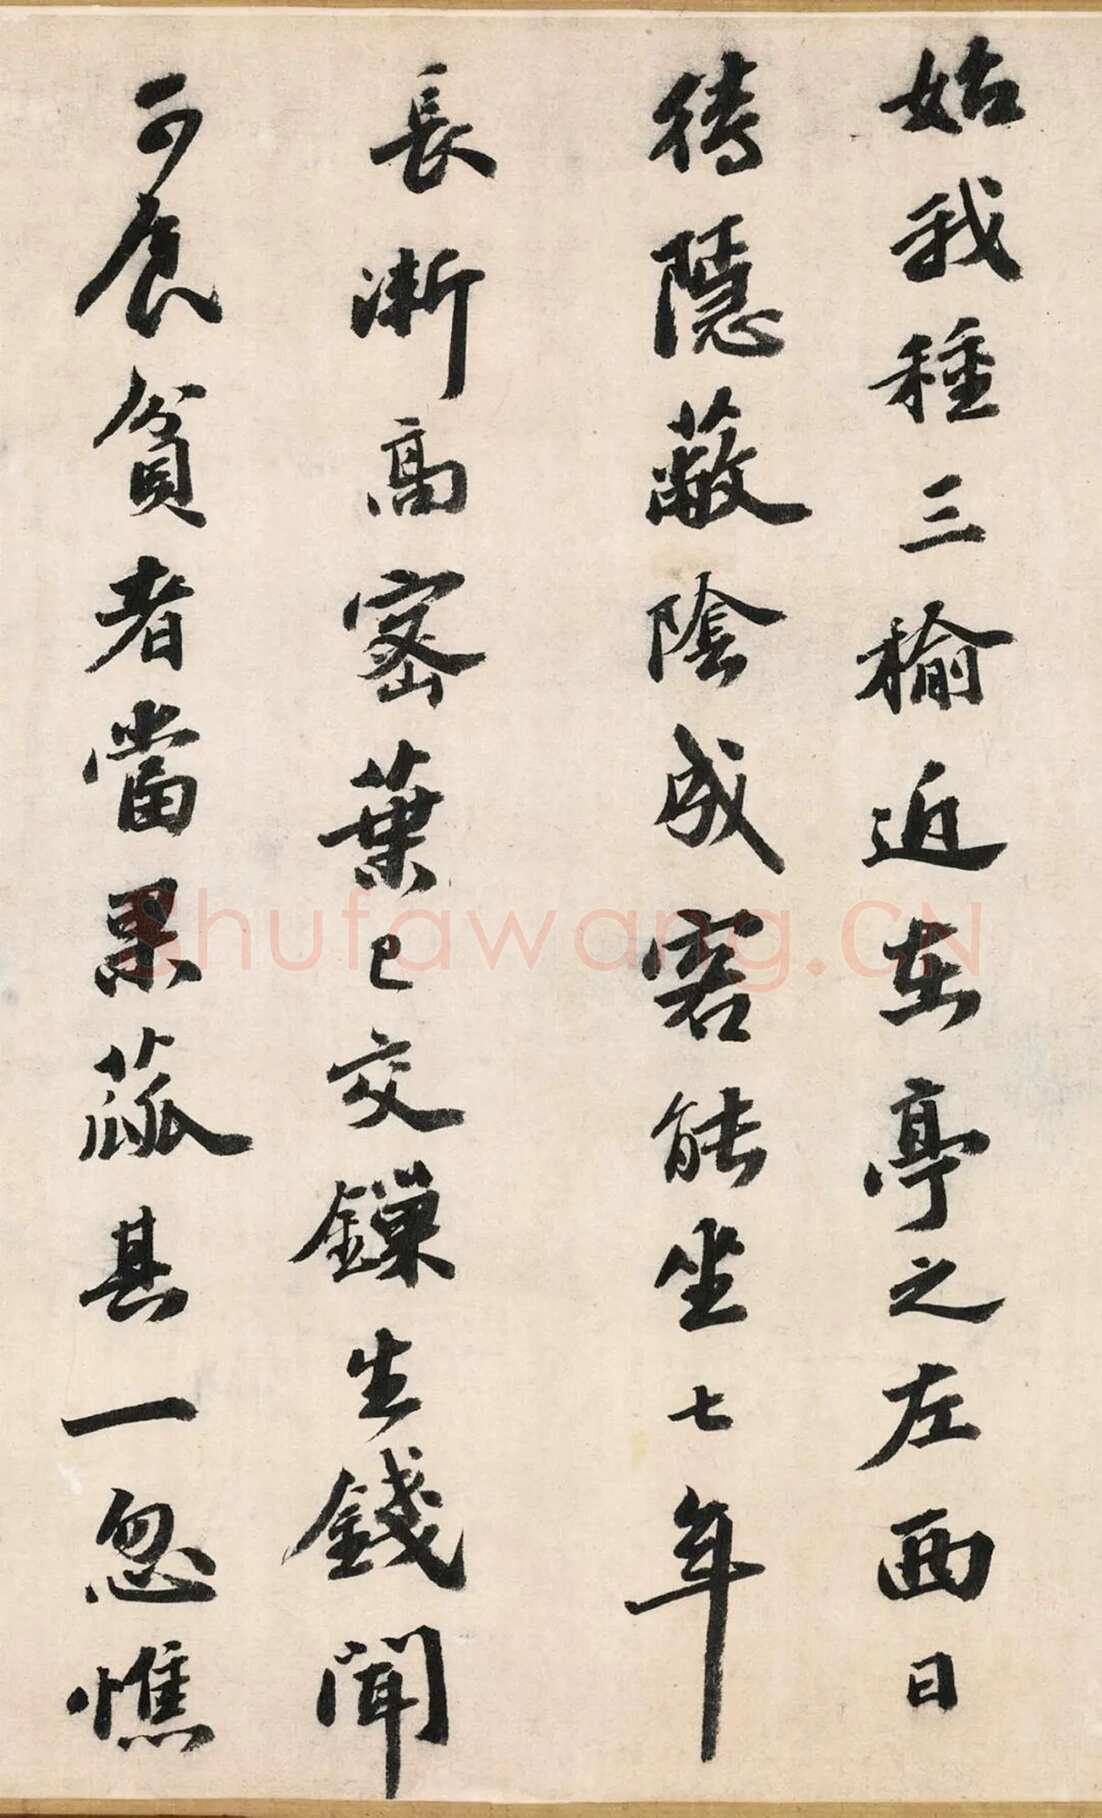 始我種三榆近在亭之左西日
待隱蔽陰成客能坐七年
長漸高密葉已交鏁生錢聞
可食貧者當果蓏其一忽憔
Shufawang.CN